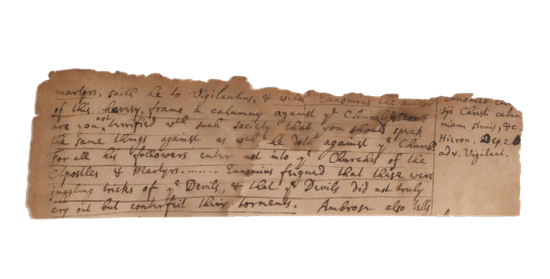 martyrs, saith he to Vigilantius, & with Eunomius the author
of this heresy, frame a calumny against ye Church
are you not terrified with such society that you should speak
the same things against us wch he doth against ye Church
For all his followers enter not into ye Churches of the
Apostles & Martyrs....... Eunomius feigned that these were
juggling tricks of ye Devils, & that ye Devils did not truly
cry out but conterfeit their torments. Ambrose also tells
Christi
niam struis, &c
Hieron.
adv. Vigilant.